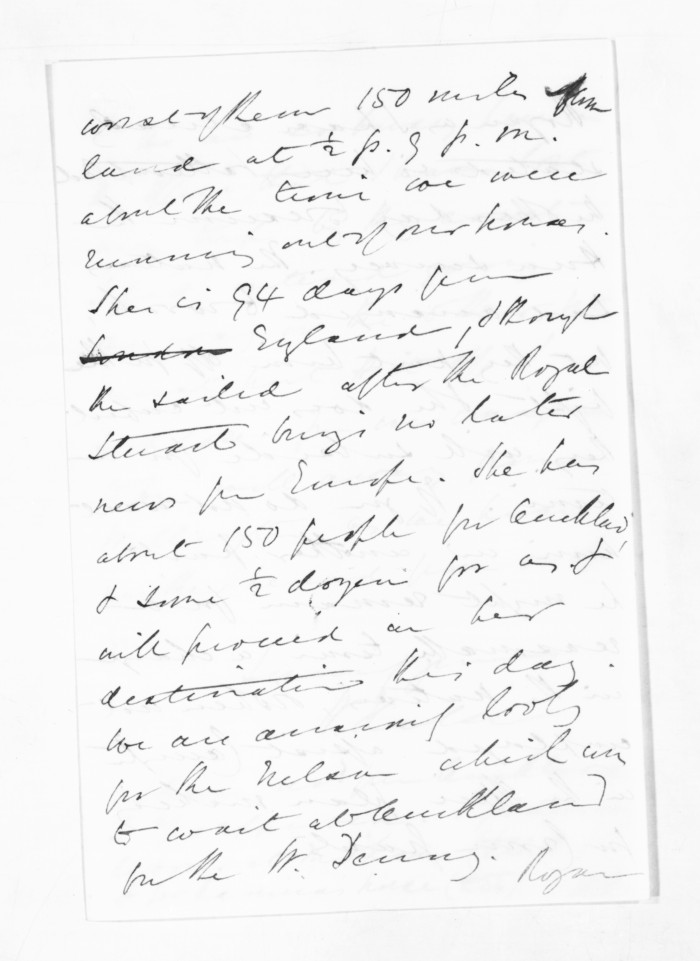 worst of them 150 miles from
land at ½ p. 9 p.m.
about the time we were
running out of our houses.
She is 94 days from
London England, & though
she sailed after the Royal
Stuart brings no later
news from Europe. She has
about 150 people for Auckland,
& some ½ dozen for us &
will proceed on her
destination this day.
We are anxiously looking
for the Nelson which was
to wait at Auckland
for the W. Denny.
Rogan